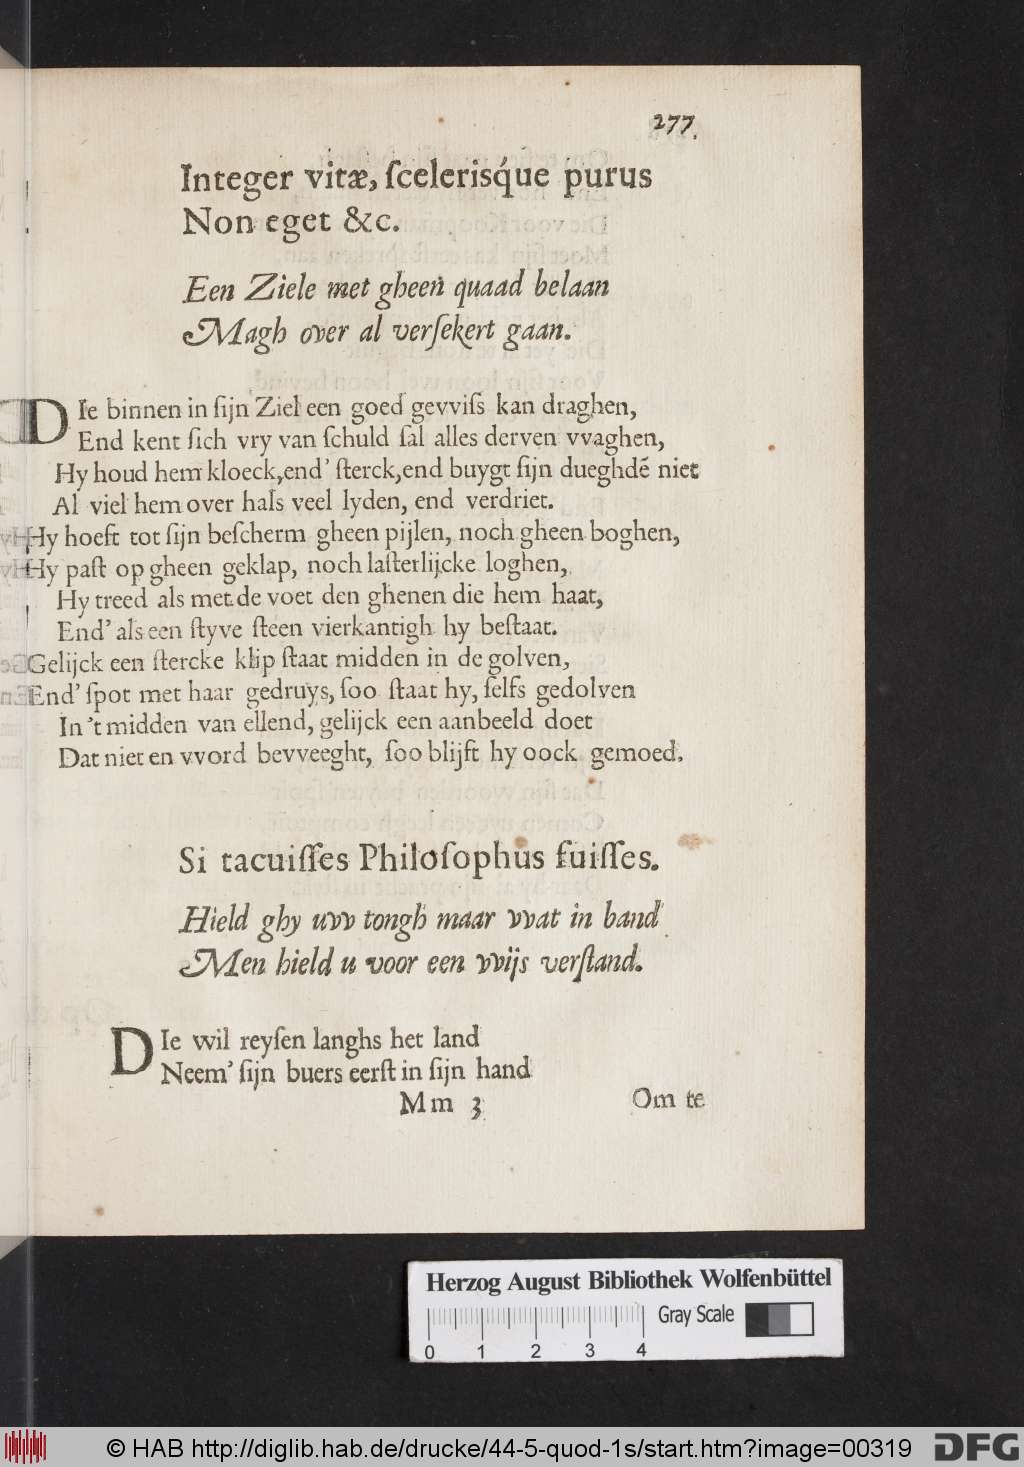 277.
Integer vitæ, ſceleriſq́ue purus
Non eget &c.
Een Ziele met gheen quaad belaan
Magh over al verſekert gaan.
DIe binnen in ſijn Ziel een goed gevviſs kan draghen,
End kent ſich vry van ſchuld ſal alles derven vvaghen,
Hy houd hem kloeck, end' ſterck, end buygt ſijn dueghdē niet
Al viel hem over hals veel lyden, end verdriet.
Hy hoeft tot ſijn beſcherm gheen pijlen, noch gheen boghen,
Hy paſt op gheen geklap, noch laſterlijcke loghen,
Hy treed als met de voet den ghenen die hem haat,
End' als een ſtyve ſteen vierkantigh hy beſtaat.
Gelijck een ſtercke klip ſtaat midden in de golven,
End' ſpot met haar gedruys, ſoo ſtaat hy, ſelfs gedolven
In 't midden van ellend, gelijck een aanbeeld doet
Dat niet en vvord bevveeght, ſoo blijft hy oock gemoed.
Si tacuiſſes Philoſophus fuiſſes.
Hield ghy uvv tongh maar vvat in band
Men hield u voor een vvijs verſtand.
DIe wil reyſen langhs het land
Neem' ſijn buers eerſt in ſijn hand
Mm 3 Om te
Herzog August Bibliothek Wolfenbüttel
Gray Scale
0 1 2 3 4
© HAB http://diglib.hab.de/drucke/44-5-quod-1s/start.htm?image=00319 DFG